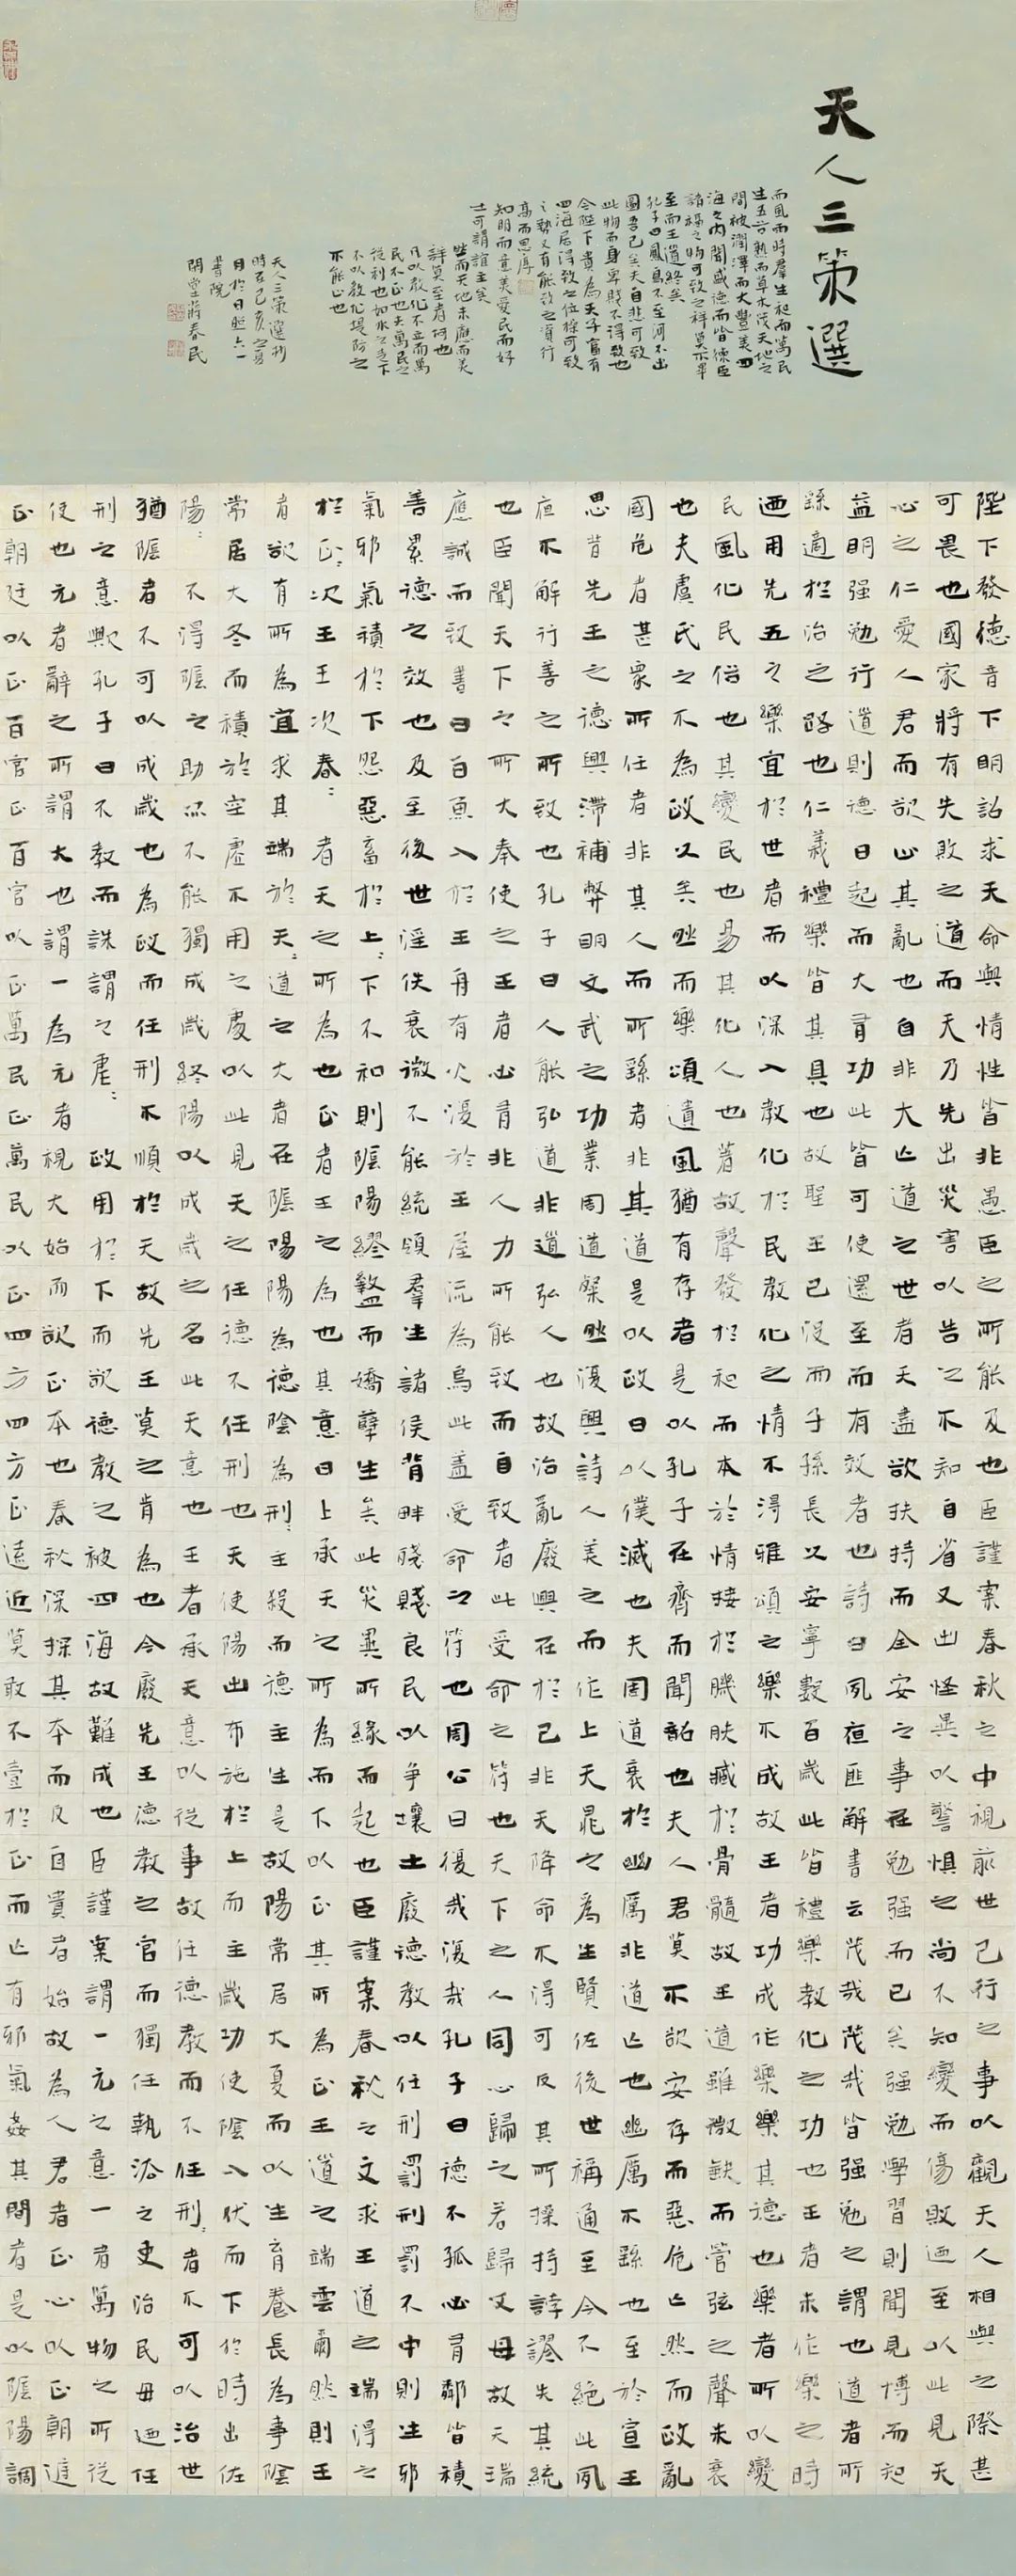 天人三策選
陛下發德音下明詔求天命與情性皆非愚臣之所能及也臣謹案春秋之中視前世已行之事以觀天人相與之際甚
可畏也國家將有失敗之道而天乃先出災害以告之不知自省又出怪異以警懼之尚不知變而傷敗迺至以此見天
心之仁愛人君而欲止其亂也自非大亡道之世者天盡欲扶持而全安之事在勉强而已矣强勉學習則聞見博而知
益明强勉行道則德日起而大有功此皆可使還至而有效者也詩曰夙夜匪解書云茂哉茂哉皆强勉之謂也道者所
繇適於治之路也仁義禮樂皆其具也故聖王已沒而子孫長久安寧數百歲此皆禮樂教化之功也王者未作樂之時
迺用先五之樂宜於世者而以深入教化於民教化之情不得雅頌之樂不成故王者功成作樂樂其德也樂者所以變
民風化民俗也其變民也易其化人也著故聲發於和而本於情接於肌膚臧於骨髓故王道雖微缺而管弦之聲未衰
也夫虞氏之不為政久矣然而樂頌遺風猶有存者是以孔子在齊而聞韶也夫人君莫不欲安存而惡危亡然而政亂
國危者甚衆所任者非其人而所繇者非其道是以政日以僕滅也夫周道衰於幽厲非道亡也幽厲不繇也至於宣王
思昔先王之德興滯補弊明文武之功業周道粲然復興詩人美之而作上天晁之為生賢佐後世稱通至今不絕此夙
夜不解行善之所致也孔子曰人能弘道非道弘人也故治亂廢興在於己非天降命不得可反其所操持誖謬失其統
也臣聞天下之所大奉使之王者必有非人力所能致而自致者此受命之符也天下之人同心歸之若歸父母故天瑞
應誠而致書曰白魚入於王舟有火復於王屋流為烏此蓋受命之符也周公曰復哉復哉孔子曰德不孤必有鄰皆積
善累德之效也及至後世淫佚衰微不能統領羣生諸侯背畔殘賤良民以爭壤土廢德教以任刑罰刑罰不中則生邪
氣邪氣積於下怨惡畜於上:下不和則陰陽繆盭而嬌孽生矣此災異所緣而起也臣謹案春秋之文求王道之端得之
於正:次王王次春::者天之所為也正者王之為也其意曰上承天之所為而下以正其所為正王道之端雲爾然則王
者欲有所為宜求其端於天:道之大者在陰陽陽為德陰為刑:主殺而德主生是故陽常居大夏而以生育養長為事陰
常居大冬而積於空虛不用之處以此見天之任德不任刑也天使陽出布施於上而主歲功使陰入伏而下於時出佐
陽:不得陰之助亦不能獨成歲終陽以成歲之名此天意也王者承天意以從事故任德教而不任刑:者不可以治世
猶陰者不可以成歲也為政而任刑不順於天故先王莫之肯為也今廢先王德教之官而獨任執法之吏治民毋迺任
刑之意歟孔子曰不教而誅謂之虐::政用於下而欲德教之被四海故難成也臣謹案謂一元之意一者萬物之所從
使也元者辭之所謂大也謂一為元者視大始而欲正本也春秋深探其本而反自貴者始故為人君者正心以正朝廷
正朝廷以正百官正百官以正萬民正萬民以正四方四方正遠近莫敢不壹於正而亡有邪氣姦其間者是以陰陽調
而風雨時羣生和而萬民
生五穀熟而草木茂天地之
間被潤澤而大豐美四
海之內聞盛德而皆徠臣
諸福之物可致之祥莫不畢
至而王道終矣
孔子曰鳳鳥不至河不出
圖吾已矣夫自悲可致
此物而身卑賤不得致也
今陛下貴為天子富有
四海居得致之位操可致
之勢又有能致之資行
高而恩厚
知明而意美愛民而好
士可謂誼主矣
然而天地未應而美
祥莫至者何也
凡以教化不立而萬
民不正也夫萬民之
從利也如水之走下
不以教化堤防之
不能止也
天人三策選刊
時在己亥之夏
月於日照六一
書院
開堂蔣春民